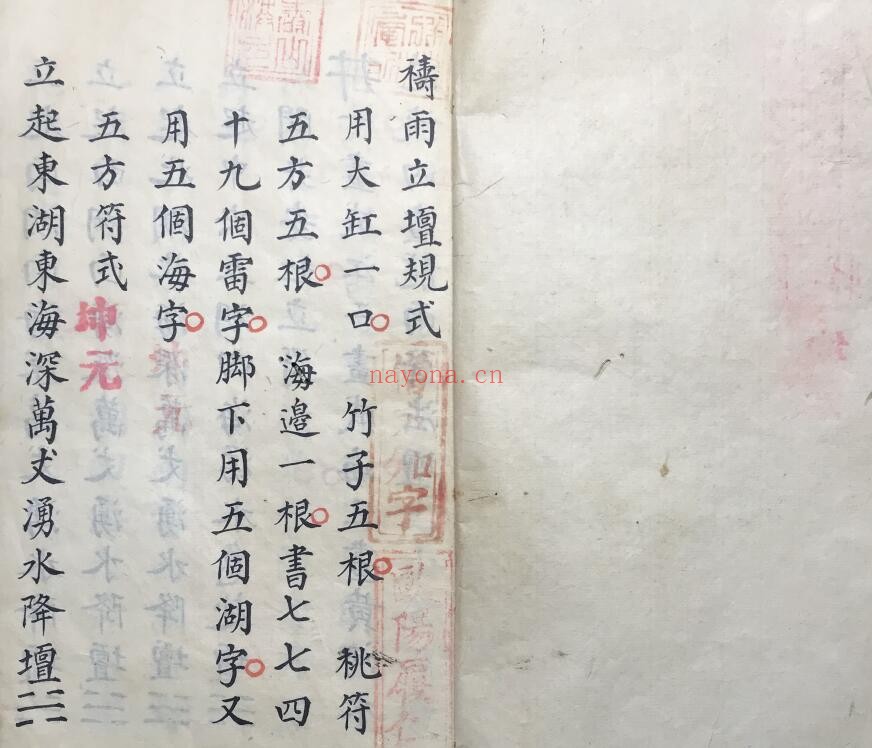 禱雨立壇規式
用大缸一口竹子五根桃符
五方五根海邊一根書七七四
十九個雷字脚下用五個湖字又
用五個海字
五方符式
坤元
立起東湖東海深萬丈湧水降壇
nayona.cn